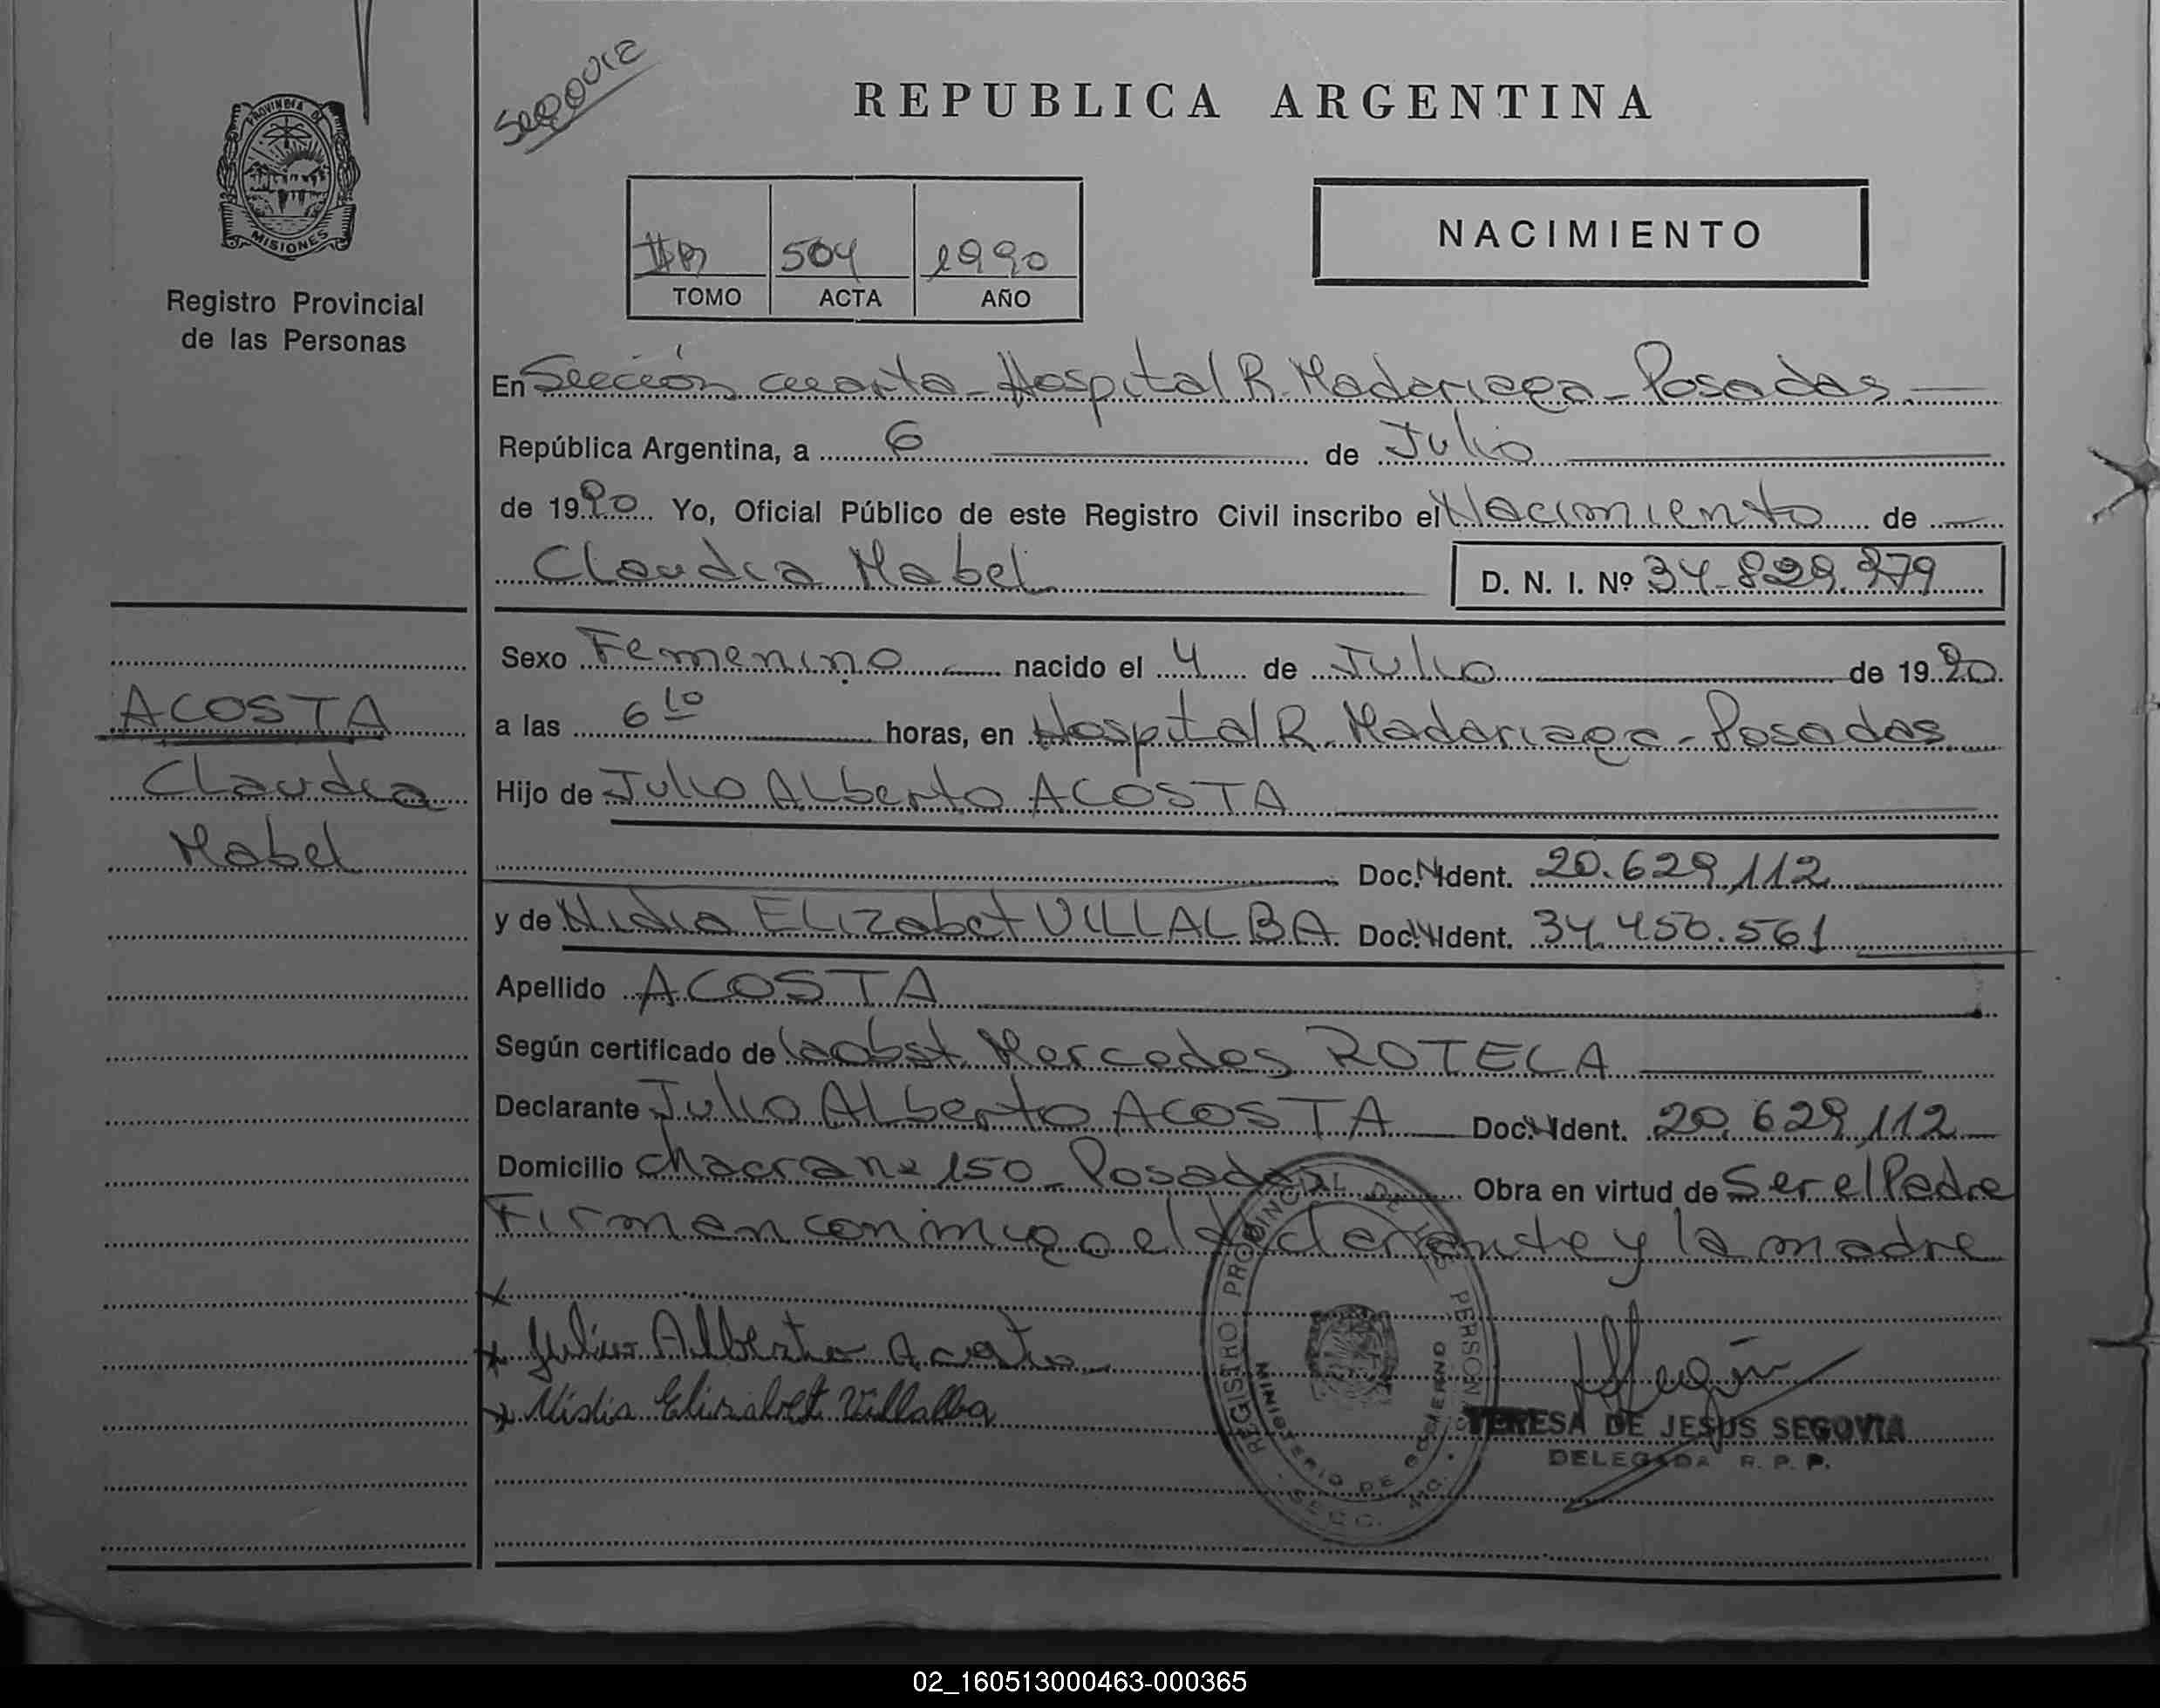 REPUBLICA ARGENTINA
PROVINCIA DE
MISIONES
Registro Provincial
de las Personas
504 1990
TOMO ACTA AÑO
NACIMIENTO
En Sección cuarta - Hospital R. Madariaga - Posadas.
República Argentina, a 6 de Julio
de 1990 Yo, Oficial Público de este Registro Civil inscribo el Nacimiento de
Claudia Mabel D. N. I. Nº 34.829.979
Sexo Femenino nacido el 4 de Julio de 1990.
ACOSTA
Claudia
Mabel
a las 6 10 horas, en Hospital R. Madariaga - Posadas
Hijo de Julio Alberto ACOSTA
Doc. N Ident. 20.629.112
y de Nidia Elizabet VILLALBA Doc. N Ident. 34.450.561
Apellido ACOSTA
Según certificado de la obst. Mercedes ROTELA
Declarante Julio Alberto ACOSTA Doc. N Ident. 20.629.112
Domicilio chacra nº 150 - Posadas Obra en virtud de Ser el Padre
Firman conmigo el declarante y la madre
Julio Alberto Acosta
Nidia Elizabet Villalba
REGISTRO PROVINCIAL DE LAS PERSONAS
MINISTERIO DE GOBIERNO
TERESA DE JESUS SEGOVIA
DELEGADA R. P. P.
02_160513000463-000365